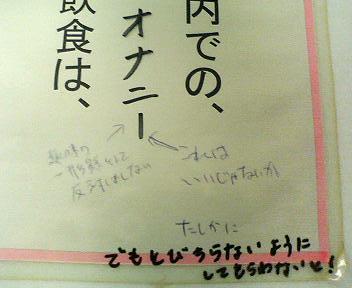 内での、
オナニー
飲食は、
これは
いいじゃないか
趣味の
一形態として
反対はしない
たしかに
でもとびちらないように
してもらわないと!